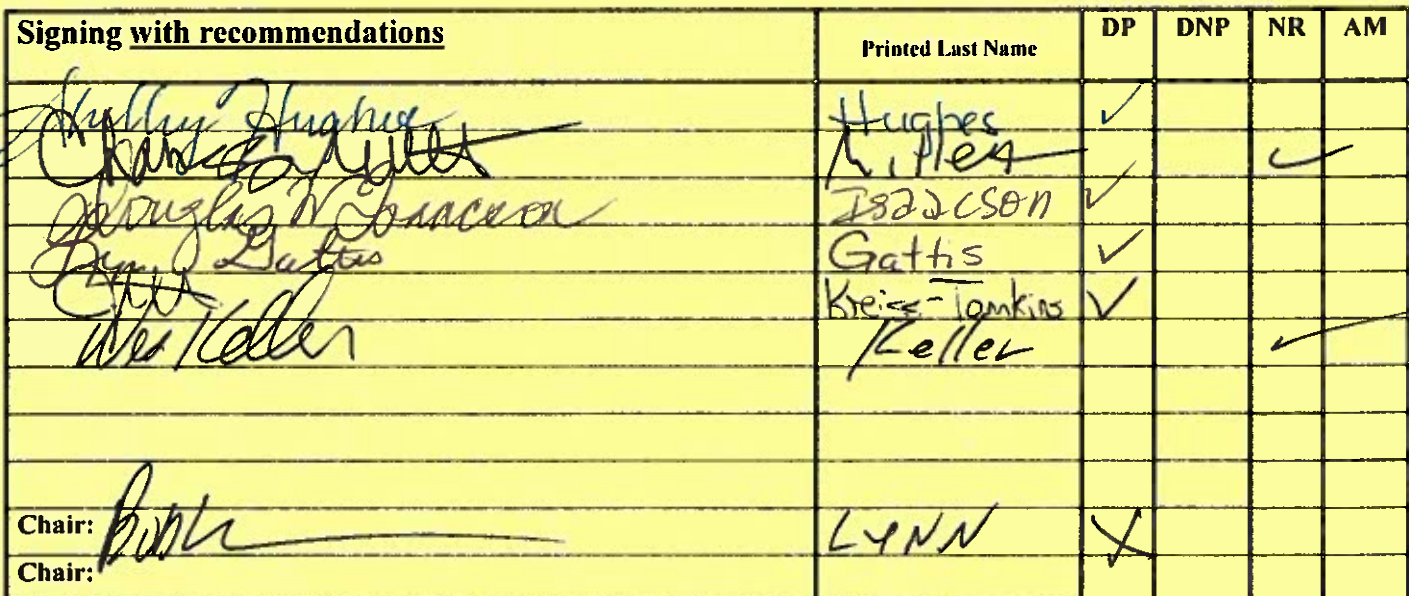 Signing with recommendations Printed Last Name DP DNP NR AM
Shelley Hughes Hughes ✓
Miller ✓
Douglas W Isaacson Isaacson ✓
Lynn Gattis Gattis ✓
Kreiss-Tomkins ✓
Wes Keller Keller ✓
Chair: Bob L LYNN X
Chair: